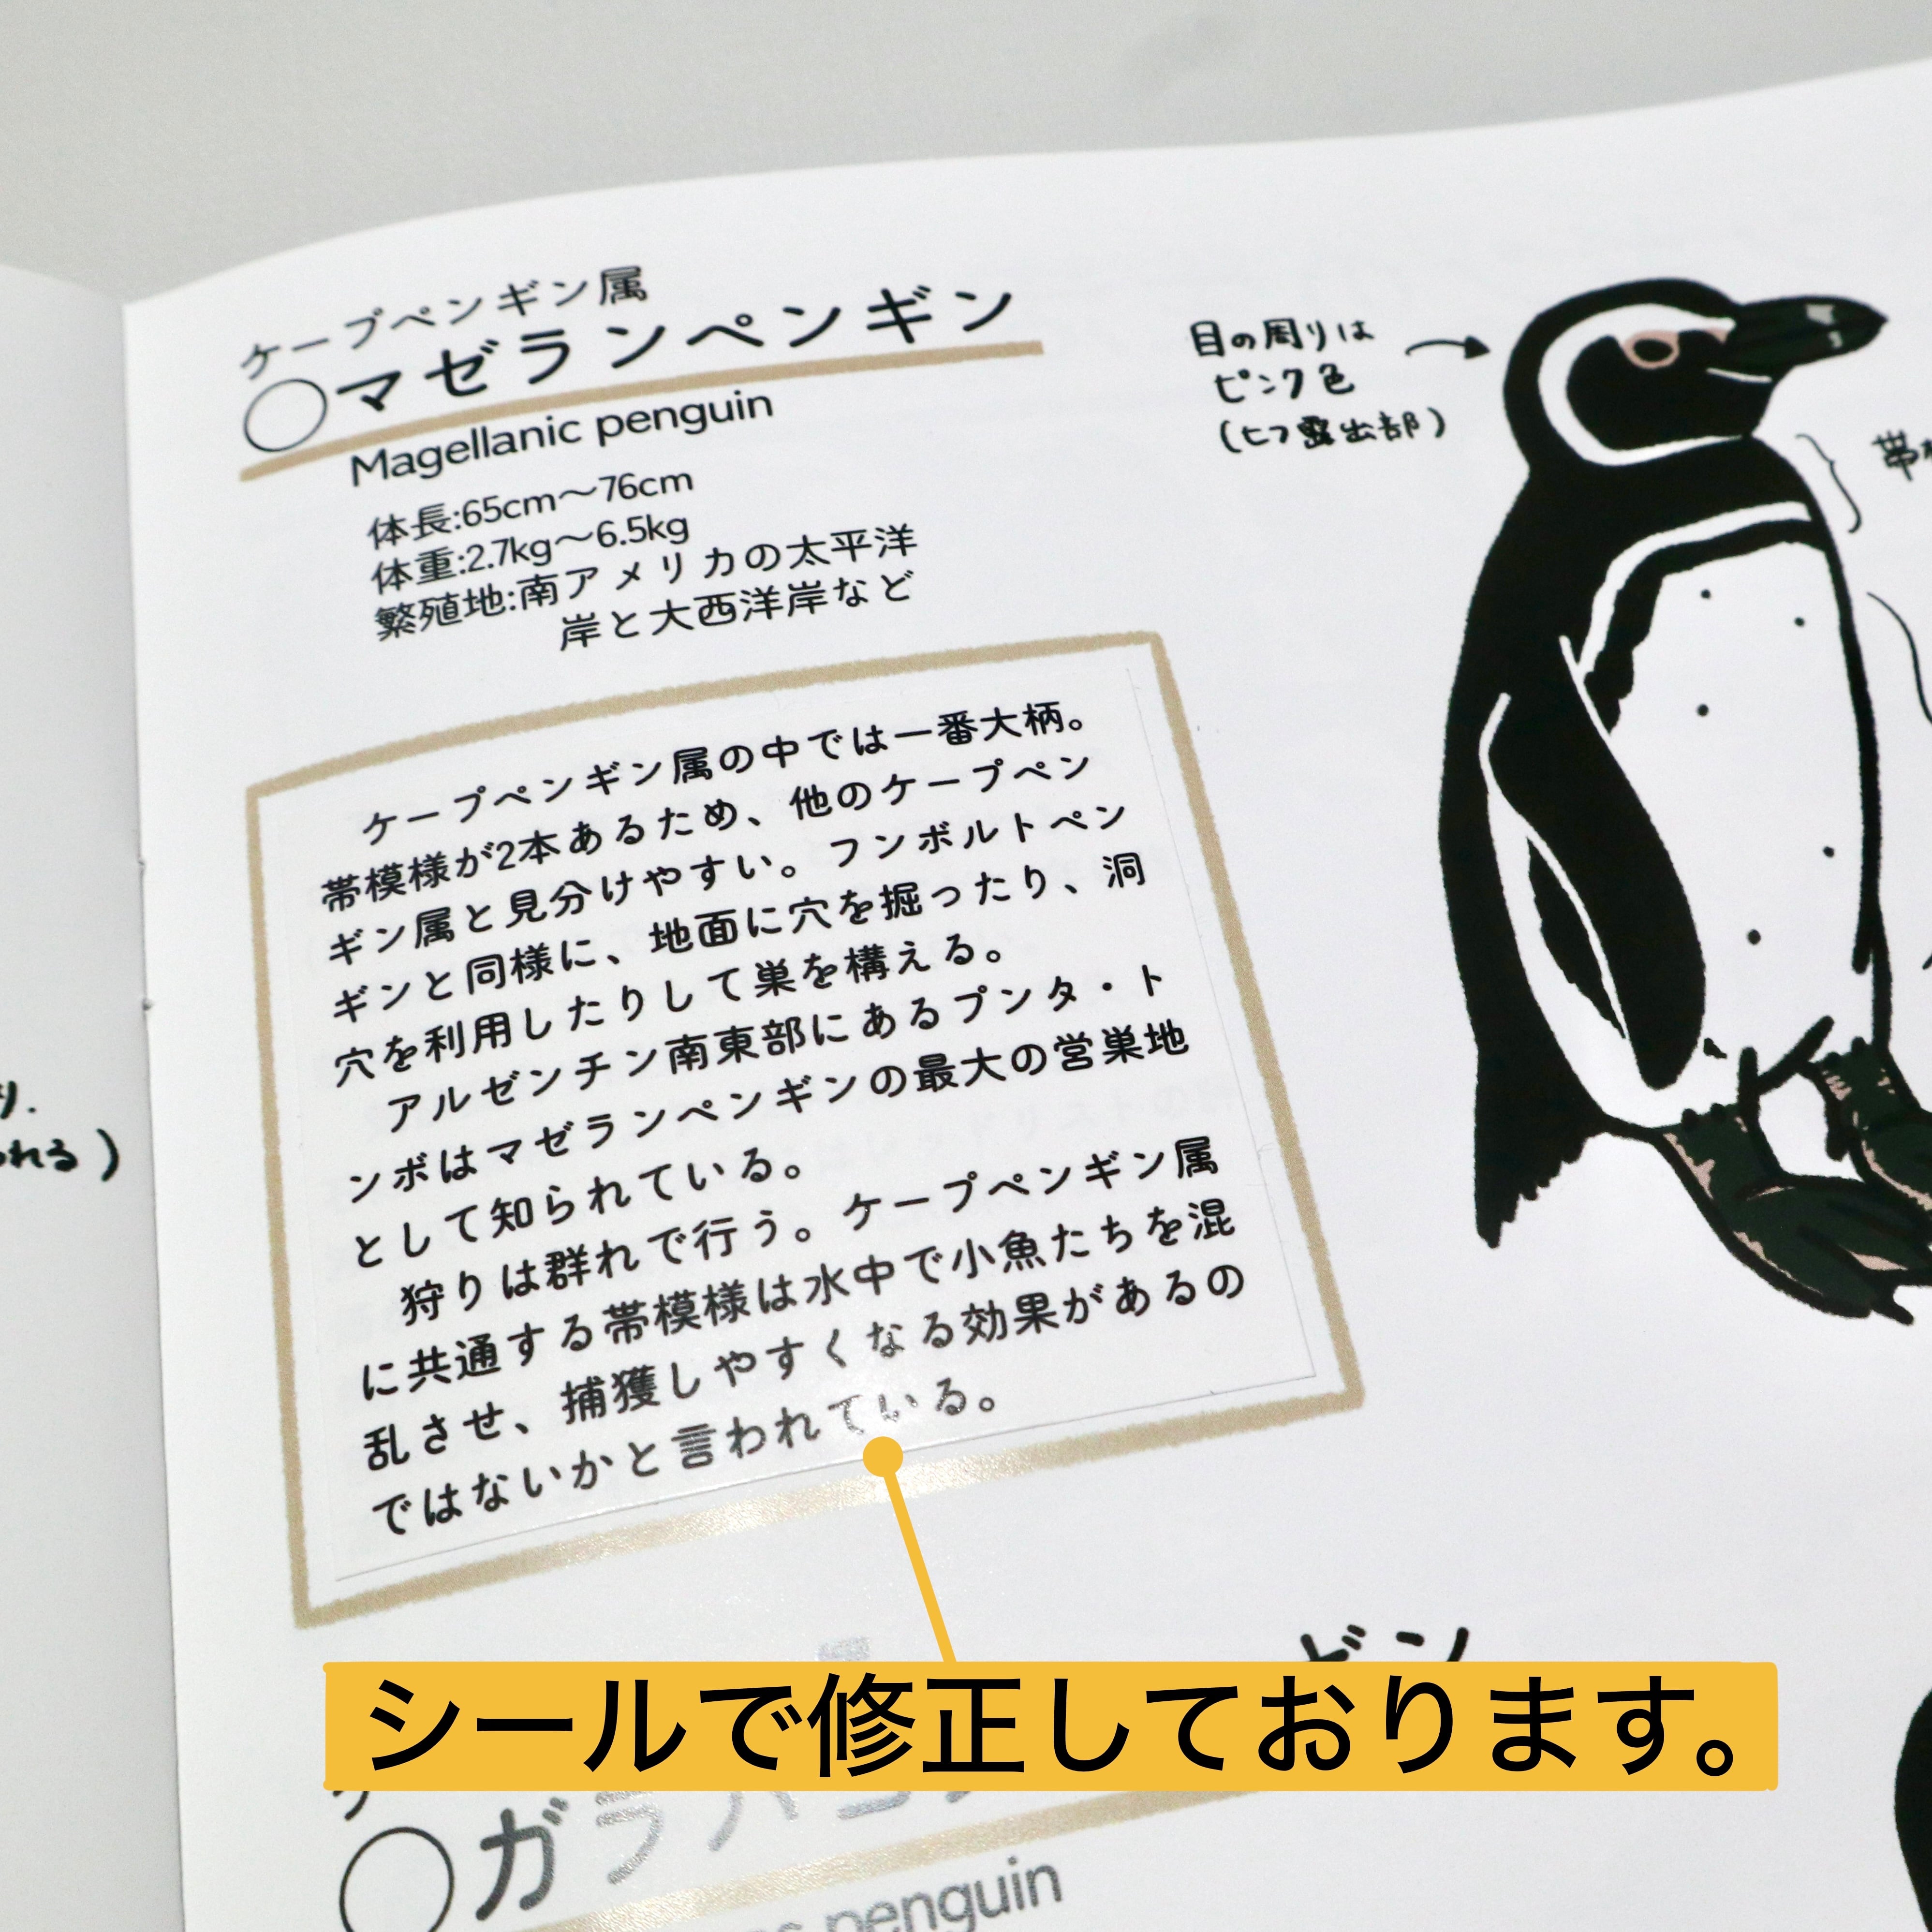 ケープペンギン属
○マゼランペンギン
Magellanic penguin
体長:65cm〜76cm
体重:2.7kg〜6.5kg
繁殖地:南アメリカの太平洋
岸と大西洋岸など
目の周りは
ピンク色
(ヒフ露出部)
ケープペンギン属の中では一番大柄。
帯模様が2本あるため、他のケープペン
ギン属と見分けやすい。フンボルトペン
ギンと同様に、地面に穴を掘ったり、洞
穴を利用したりして巣を構える。
アルゼンチン南東部にあるプンタ・ト
ンボはマゼランペンギンの最大の営巣地
として知られている。
狩りは群れで行う。ケープペンギン属
に共通する帯模様は水中で小魚たちを混
乱させ、捕獲しやすくなる効果があるの
ではないかと言われている。
シールで修正しております。
penguin